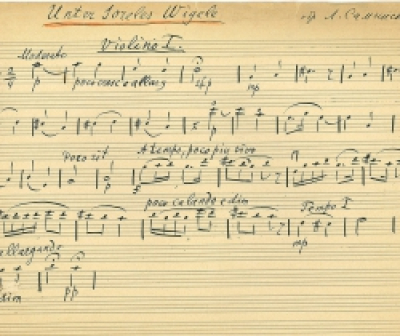 Unter Soreles Wigele
обр Л. Саминск
Violino I.
Moderato
p poco cresc e allarg sfp mp
p
Poco rit A tempo, poco piu vivo
poco calando e dim Tempo I
mp
allargando
dim pp